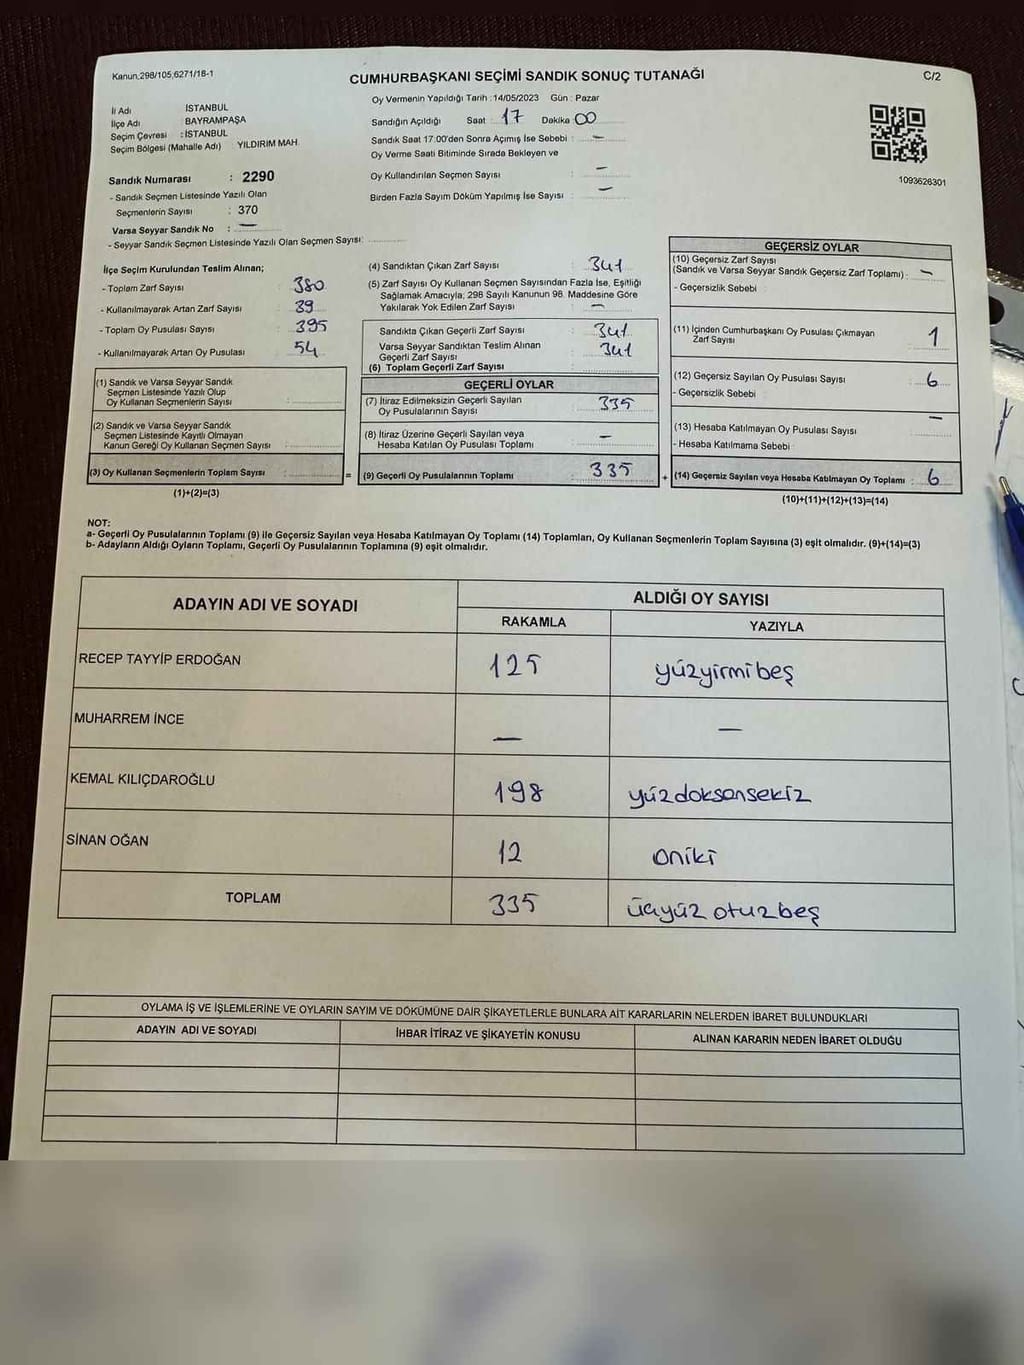 Kanun,298/105,6271/18-1
CUMHURBAŞKANI SEÇİMİ SANDIK SONUÇ TUTANAĞI
C/2
İl Adı İSTANBUL
İlçe Adı BAYRAMPAŞA
Seçim Çevresi : İSTANBUL
Seçim Bölgesi (Mahalle Adı) YILDIRIM MAH.
Oy Vermenin Yapıldığı Tarih : 14/05/2023 Gün : Pazar
Sandığın Açıldığı Saat : 17 Dakika 00
Sandık Saat 17:00'den Sonra Açımış İse Sebebi : —
Oy Verme Saati Bitiminde Sırada Bekleyen ve
Oy Kullandırılan Seçmen Sayısı : —
Birden Fazla Sayım Döküm Yapılmış İse Sayısı : —
1093626301
Sandık Numarası : 2290
- Sandık Seçmen Listesinde Yazılı Olan
Seçmenlerin Sayısı : 370
Varsa Seyyar Sandık No : —
- Seyyar Sandık Seçmen Listesinde Yazılı Olan Seçmen Sayısı:
İlçe Seçim Kurulundan Teslim Alınan;
- Toplam Zarf Sayısı : 380
- Kullanılmayarak Artan Zarf Sayısı : 39
- Toplam Oy Pusulası Sayısı : 395
- Kullanılmayarak Artan Oy Pusulası : 54
(1) Sandık ve Varsa Seyyar Sandık
Seçmen Listesinde Yazılı Olup
Oy Kullanan Seçmenlerin Sayısı :
(2) Sandık ve Varsa Seyyar Sandık
Seçmen Listesinde Kayıtlı Olmayan
Kanun Gereği Oy Kullanan Seçmen Sayısı :
(3) Oy Kullanan Seçmenlerin Toplam Sayısı :
(1)+(2)=(3)
(4) Sandıktan Çıkan Zarf Sayısı : 341
(5) Zarf Sayısı Oy Kullanan Seçmen Sayısından Fazla İse, Eşitliği
Sağlamak Amacıyla; 298 Sayılı Kanunun 98. Maddesine Göre
Yakılarak Yok Edilen Zarf Sayısı : —
Sandıkta Çıkan Geçerli Zarf Sayısı : 341
Varsa Seyyar Sandıktan Teslim Alınan
Geçerli Zarf Sayısı : 341
(6) Toplam Geçerli Zarf Sayısı :
GEÇERLİ OYLAR
(7) İtiraz Edilmeksizin Geçerli Sayılan
Oy Pusulalarının Sayısı : 335
(8) İtiraz Üzerine Geçerli Sayılan veya
Hesaba Katılan Oy Pusulası Toplamı : —
= (9) Geçerli Oy Pusulalarının Toplamı : 335
GEÇERSİZ OYLAR
(10) Geçersiz Zarf Sayısı
(Sandık ve Varsa Seyyar Sandık Geçersiz Zarf Toplamı) : —
- Geçersizlik Sebebi :
(11) İçinden Cumhurbaşkanı Oy Pusulası Çıkmayan
Zarf Sayısı : 1
(12) Geçersiz Sayılan Oy Pusulası Sayısı : 6
- Geçersizlik Sebebi :
(13) Hesaba Katılmayan Oy Pusulası Sayısı : —
- Hesaba Katılmama Sebebi :
+ (14) Geçersiz Sayılan veya Hesaba Katılmayan Oy Toplamı : 6
(10)+(11)+(12)+(13)=(14)
NOT:
a- Geçerli Oy Pusulalarının Toplamı (9) ile Geçersiz Sayılan veya Hesaba Katılmayan Oy Toplamı (14) Toplamları, Oy Kullanan Seçmenlerin Toplam Sayısına (3) eşit olmalıdır. (9)+(14)=(3)
b- Adayların Aldığı Oyların Toplamı, Geçerli Oy Pusulalarının Toplamına (9) eşit olmalıdır.
ADAYIN ADI VE SOYADI
ALDIĞI OY SAYISI
RAKAMLA YAZIYLA
RECEP TAYYİP ERDOĞAN 125 yüzyirmibeş
MUHARREM İNCE — —
KEMAL KILIÇDAROĞLU 198 yüzdoksansekiz
SİNAN OĞAN 12 oniki
TOPLAM 335 üçyüz otuzbeş
OYLAMA İŞ VE İŞLEMLERİNE VE OYLARIN SAYIM VE DÖKÜMÜNE DAİR ŞİKAYETLERLE BUNLARA AİT KARARLARIN NELERDEN İBARET BULUNDUKLARI
ADAYIN ADI VE SOYADI İHBAR İTİRAZ VE ŞİKAYETİN KONUSU ALINAN KARARIN NEDEN İBARET OLDUĞU